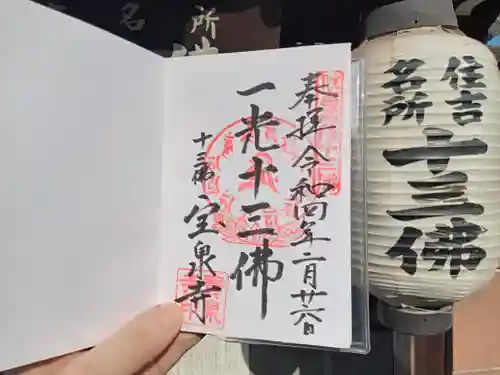 奉拝令和四年二月廿六日
一光十三佛
十三佛 宝泉寺
住吉
名所
十三佛
名
所